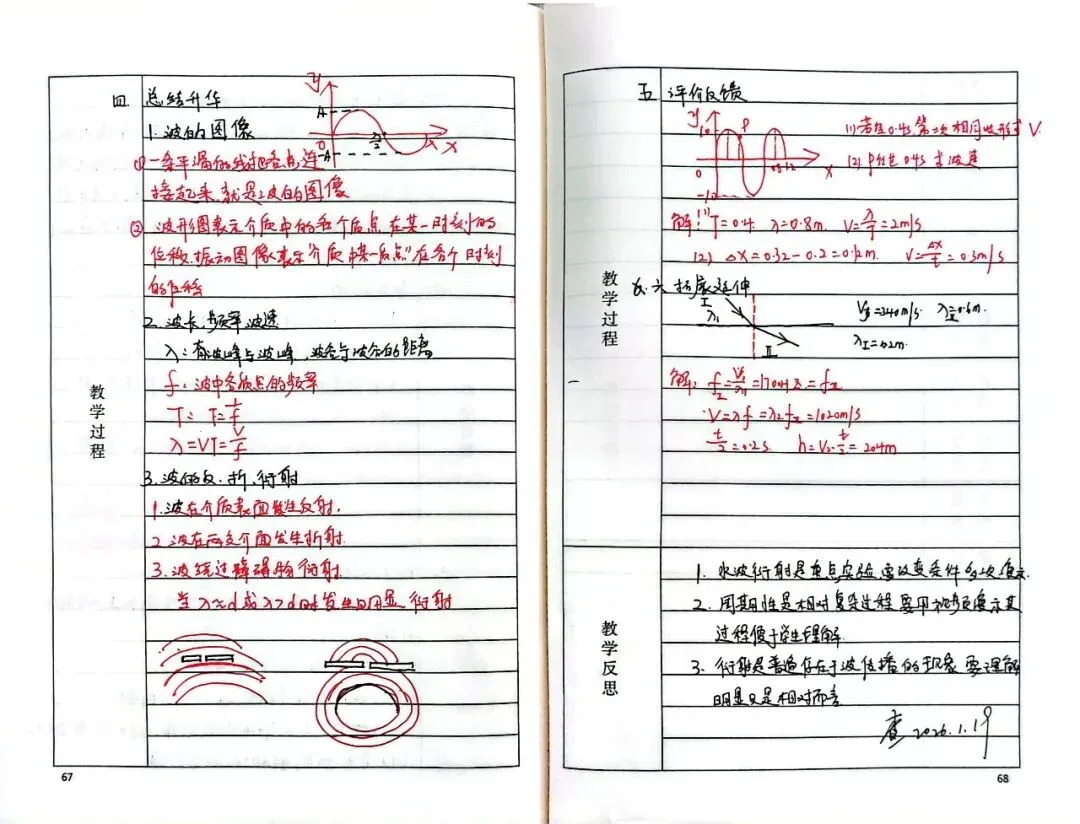 四 总结升华
y
A
1. 波的图像
λ/2
x
x
-A
① 一条平滑的线把各点连
接起来,就是波的图像
② 波形图表示介质中的各个质点在某一时刻的
位移.振动图像表示"介质中某一质点"在各个时刻
的位移
2. 波长,频率,波速
λ: 波峰与波峰,波谷与波谷的距离
f: 波中各质点的频率
T: T=1/f
λ=VT=V/f
3. 波的反.折,衍射
1. 波在介质表面发生反射.
2. 波在两支介面发生折射.
3. 波绕过障碍物衍射.
当λ≈d或λ>d时发生明显衍射
教学过程
67
五 评价反馈
y
10
P
0
x
-10
(1) 若在0.4s,第一次相同波形求V
(2). P在0.4s求波速
解: (1) T=0.4. λ=0.8m. V=λ/T=2m/s
(2) ΔX=0.32-0.2=0.12m. V=Δx/t=0.3m/s
六 拓展延伸
I
λ1
II
V=340m/s. λ=0.6m.
λI=0.2m.
解: f=V1/λ1=1700Hz=fⅡ
V=λf=λ2fⅡ=1020m/s
t/2=0.2s. h=V2·t/2=204m
教学过程
1. 水波衍射是重点实验要改变条件多次演示.
2. 周期性是相对复杂过程要用视频展示其
过程便于学生理解.
3. 衍射是普遍存在于波传播的现象要理解
明显只是相对而言.
查 2026.1.19
教学反思
68